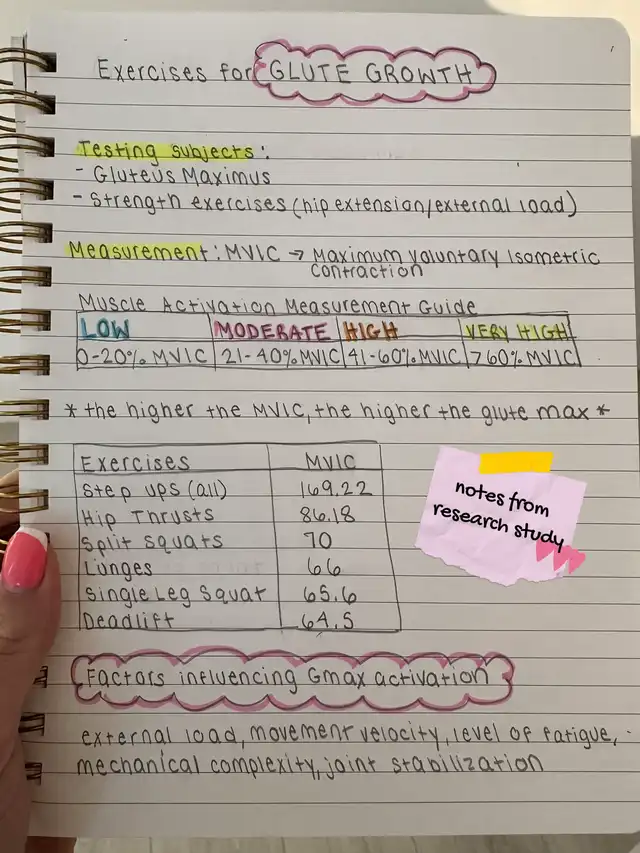 Exercises for GLUTE GROWTH
Testing subjects:
- Gluteus Maximus
- Strength exercises (hip extension/external load)
Measurement: MVIC → Maximum Voluntary Isometric
contraction
Muscle Activation Measurement Guide
LOW MODERATE HIGH VERY HIGH
0-20% MVIC 21-40% MVIC 41-60% MVIC >60% MVIC
* the higher the MVIC, the higher the glute max *
Exercises MVIC
Step ups (all) 169.22
Hip Thrusts 86.18
Split squats 70
Lunges 66
Single Leg Squat 65.6
Deadlift 64.5
notes from
research study
Factors influencing Gmax activation
external load, movement velocity, level of fatigue,
mechanical complexity, joint stabilization